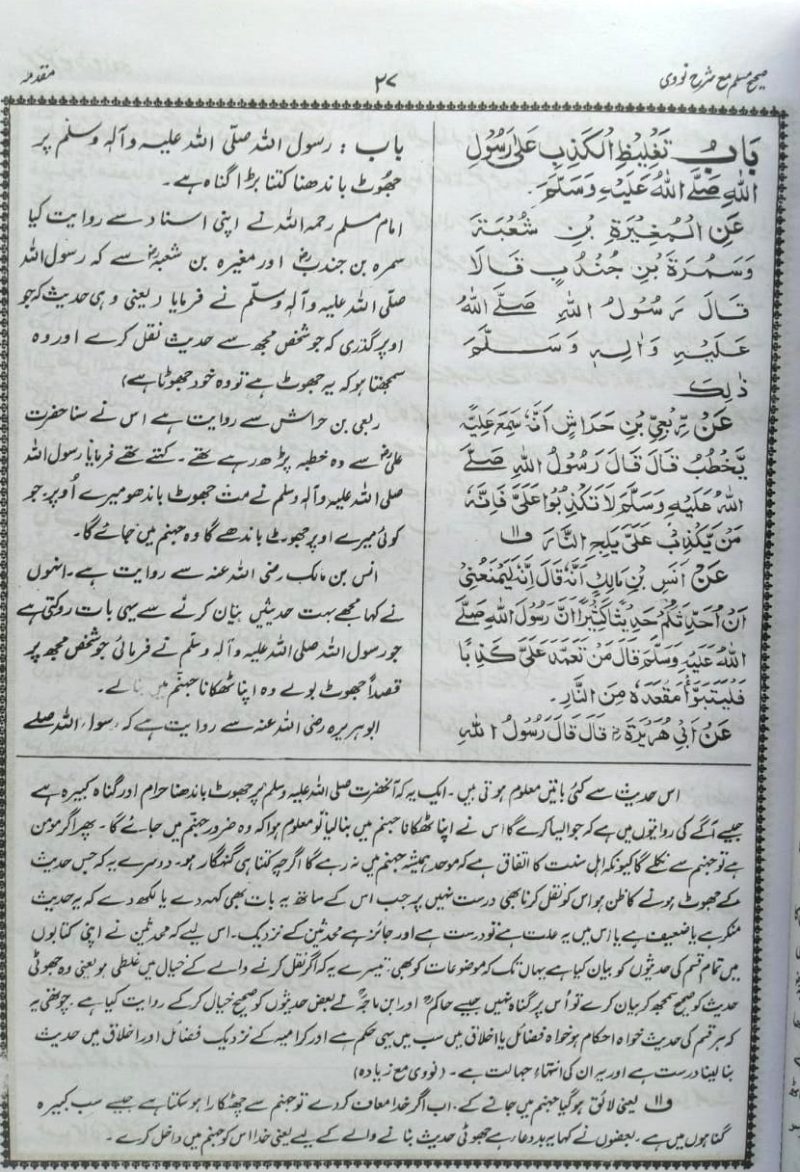 صحیح مسلم مع شرح نووی
۲۷
مقدمہ
بَابُ تَغْلِيْظِ الْكَذِبِ عَلٰى رَسُوْلِ
اللّٰهِ صَلَّى اللّٰهُ عَلَيْهِ وَسَلَّمَ.
عَنِ الْمُغِيْرَةِ بْنِ شُعْبَةَ
وَسَمُرَةَ بْنِ جُنْدُبٍ قَالَا
قَالَ رَسُوْلُ اللّٰهِ صَلَّى اللّٰهُ
عَلَيْهِ وَاٰلِهٖ وَسَلَّمَ
ذٰلِكَ
عَنْ رِبْعِيِّ بْنِ حِرَاشٍ اَنَّهٗ سَمِعَ عَلِيًّا
يَّخْطُبُ قَالَ قَالَ رَسُوْلُ اللّٰهِ صَلَّى
اللّٰهُ عَلَيْهِ وَسَلَّمَ لَا تَكْذِبُوْا عَلَيَّ فَاِنَّهٗ
مَنْ يَّكْذِبْ عَلَيَّ يَلِجِ النَّارَ ف۱۱
عَنْ اَنَسِ بْنِ مَالِكٍ اَنَّهٗ قَالَ اِنَّهٗ لَيَمْنَعُنِيْ
اَنْ اُحَدِّثَكُمْ حَدِيْثًا كَثِيْرًا اَنَّ رَسُوْلَ اللّٰهِ صَلَّى
اللّٰهُ عَلَيْهِ وَسَلَّمَ قَالَ مَنْ تَعَمَّدَ عَلَيَّ كَذِبًا
فَلْيَتَبَوَّأْ مَقْعَدَهٗ مِنَ النَّارِ.
عَنْ اَبِيْ هُرَيْرَةَ رض قَالَ قَالَ رَسُوْلُ اللّٰهِ
باب : رسول اللہ صلّی اللہ علیہ وآلہٖ وسلّم پر
جھوٹ باندھنا کتنا بڑا گناہ ہے۔
امام مسلم رحمہ اللہ نے اپنی اسناد سے روایت کیا
سمرہ بن جندبؓ اور مغیرہ بن شعبہؓ سے کہ رسول اللہ
صلّی اللہ علیہ وآلہٖ وسلّم نے فرمایا (یعنی وہی حدیث کہ جو
اوپر گذری کہ جو شخص مجھ سے حدیث نقل کرے اور وہ
سمجھتا ہو کہ یہ جھوٹ ہے تو وہ خود جھوٹا ہے)
ربعی بن حراش سے روایت ہے اس نے سنا حضرت
علیؓ سے وہ خطبہ پڑھ رہے تھے۔ کہتے تھے فرمایا رسول اللہ
صلی اللہ علیہ وآلہٖ وسلم نے مت جھوٹ باندھو میرے اُوپر جو
کوئی میرے اوپر جھوٹ باندھے گا وہ جہنم میں جائے گا۔
انس بن مالک رضی اللہ عنہ سے روایت ہے۔ انہوں
نے کہا مجھے بہت حدیثیں بیان کرنے سے یہی بات روکتی ہے
جو رسول اللہ صلی اللہ علیہ وآلہ وسلّم نے فرمائی جو شخص مجھ پر
قصداً جھوٹ بولے وہ اپنا ٹھکانا جہنّم میں بنا لے۔
ابو ہریرہ رضی اللہ عنہ سے روایت ہے کہ رسول اللہ صلّے
اس حدیث سے کئی باتیں معلوم ہوتی ہیں۔ ایک یہ کہ آنحضرت صلی اللہ علیہ وسلم پر جھوٹ باندھنا حرام اور گناہ کبیرہ ہے
جیسے آگے کی روایتوں میں ہے کہ جو ایسا کرے گا اس نے اپنا ٹھکانا جہنم میں بنالیا تو معلوم ہوا کہ وہ ضرور جہنّم میں جائے گا۔ پھر اگر مومن
ہے تو جہنم سے نکلے گا کیونکہ اہل سنت کا اتفاق ہے کہ موحد ہمیشہ جہنم میں نہ رہے گا اگرچہ کتنا ہی گنہگار ہو۔ دوسرے یہ کہ جس حدیث
کے جھوٹ ہونے کا ظن ہو اس کو نقل کرنا بھی درست نہیں پر جب اس کے ساتھ یہ بات بھی کہہ دے یا لکھ دے کہ یہ حدیث
منکر ہے یا ضعیف ہے یا اس میں یہ علت ہے تو درست ہے اور جائز ہے محدثین کے نزدیک۔ اس لیے کہ محدثین نے اپنی کتابوں
میں تمام قسم کی حدیثوں کو بیان کیا ہے یہاں تک کہ موضوعات کو بھی۔ تیسرے یہ کہ اگر نقل کرنے والے کے خیال میں غلطی ہو یعنی وہ جھوٹی
حدیث کو صحیح سمجھ کر بیان کرے تو اُس پر گناہ نہیں جیسے حاکمؒ اور ابن ماجہؒ نے بعض حدیثوں کو صحیح خیال کرکے روایت کیا ہے۔ چوتھی یہ
کہ ہر قسم کی حدیث خواہ احکام ہو خواہ فضائل یا اخلاق میں سب میں یہی حکم ہے اور کرامیہ کے نزدیک فضائل اور اخلاق میں حدیث
بنا لینا درست ہے اور یہ ان کی انتہاء جہالت ہے۔ (نووی مع زیادہ)
ف۱۱ یعنی لائق ہوگیا جہنم میں جانے کے۔ اب اگر خدا معاف کردے تو جہنم سے چھٹکارا ہو سکتا ہے جیسے سب کبیرہ
گناہوں میں ہے۔ بعضوں نے کہا یہ بددعا ہے جھوٹی حدیث بنانے والے کے لیے یعنی خدا اس کو جہنم میں داخل کرے۔